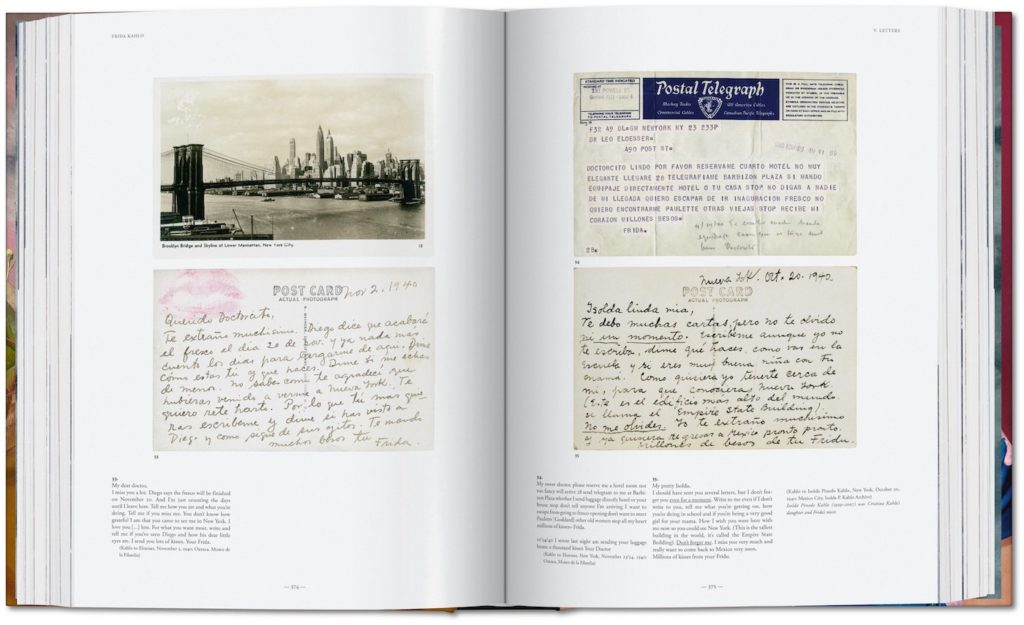 FRIDA KAHLO
Brooklyn Bridge and Skyline of Lower Manhattan, New York City.
POST CARD
ACTUAL PHOTOGRAPH
Nov 2. 1940
Querido Doctorcito,
Te extraño muchísimo. Diego dice que acabará
el fresco el día 20 de Nov. y ya nada más
cuento los días para largarme de aquí. Dime
cómo estás tú y que haces. Dime si me echas
de menos. No sabes como te agradecí que
hubieras venido a verme a Nueva York. Te
quiero rete harto. Por lo que tú más que
ras escríbeme y dime si has visto a
Diego y como sigue de sus ojitos. Te mando
muchos besos tu Frida.
33
33.
My dear doctor,
I miss you a lot. Diego says the fresco will be finished
on November 20. And I'm just counting the days
until I leave here. Tell me how you are and what you're
doing. Tell me if you miss me. You don't know how
grateful I am that you came to see me in New York. I
love you [...] lots. For what you want most, write and
tell me if you've seen Diego and how his dear little
eyes are. I send you lots of kisses. Your Frida.
(Kahlo to Eloesser, November 2, 1940: Oaxaca, Museo de
la Filatelia)
— 374 —
V. LETTERS
STANDARD TIME INDICATED
Postal Telegraph
Mackay Radio
All America Cables
Commercial Cables
Canadian Pacific Telegraphs
F38 49 DL=GM NEWYORK NY 23 233P
DR LEO ELOESSER=
490 POST ST=
DOCTORCITO LINDO POR FAVOR RESERVAME CUARTO HOTEL NO MUY
ELEGANTE LLEGARE 28 TELEGRAFIAME BARBIZON PLAZA SI MANDO
EQUIPAJE DIRECTAMENTE HOTEL O TU CASA STOP NO DIGAS A NADIE
DE MI LLEGADA QUIERO ESCAPAR DE IR INAGURACION FRESCO NO
QUIERO ENCONTRARME PAULETTE OTRAS VIEJAS STOP RECIBE MI
CORAZON MILLONES BESOS=
FRIDA.
28.
34
Nueva York. Oct. 20. 1940
POST CARD
ACTUAL PHOTOGRAPH
Isolda linda mía,
te debo muchas cartas, pero no te olvido
ni un momento. Escríbeme aunque yo no
te escriba, dime qué haces, como vas en la
Escuela y si eres muy buena niña con tu
mamá. Como quisiera yo tenerte cerca de
mí, para que conociera Nueva York.
(Este es el edificio más alto del mundo
se llama el "Empire State Building).
No me olvides. Yo te extraño muchísimo
y ya quisiera regresar a México pronto pronto.
Millones de besos de tu Frida.
35
34.
My sweet doctor, please reserve me a hotel room not
too fancy will arrive 28 send telegram to me at Barbi-
zon Plaza whether I send luggage directly hotel or your
house stop don't tell anyone I'm arriving I want to
escape from going to fresco opening don't want to meet
Paulette [Goddard] other old women stop all my heart
millions of kisses Frida.
(Kahlo to Eloesser, New York, November 23/24, 1940:
Oaxaca, Museo de la Filatelia)
35.
My pretty Isolda,
I should have sent you several letters, but I don't for-
get you even for a moment. Write to me even if I don't
write to you, tell me what you're getting on, how
you're doing in school and if you're being a very good
girl for your mama. How I wish you were here with
me now so you could see New York. (This is the tallest
building in the world, it's called the Empire State
Building). Don't forget me. I miss you very much and
really want to come back to Mexico very soon.
Millions of kisses from your Frida.
(Kahlo to Isolda Pinedo Kahlo, New York, October 20,
1940: Mexico City, Isolda P. Kahlo Archive)
Isolda Pinedo Kahlo (1929–2007) was Cristina Kahlo's
daughter and Frida's niece.
— 375 —